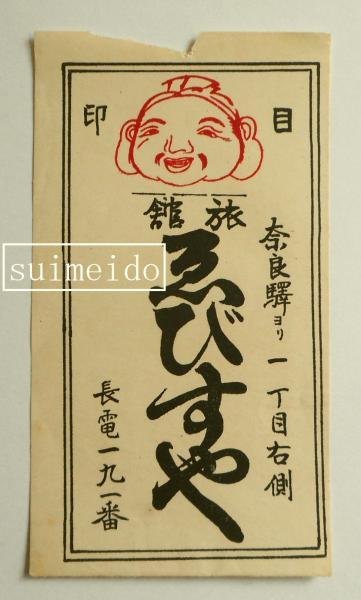 目印
旅館
奈良驛ヨリ一丁目右側
ゑびすや
長電一九一番
suimeido